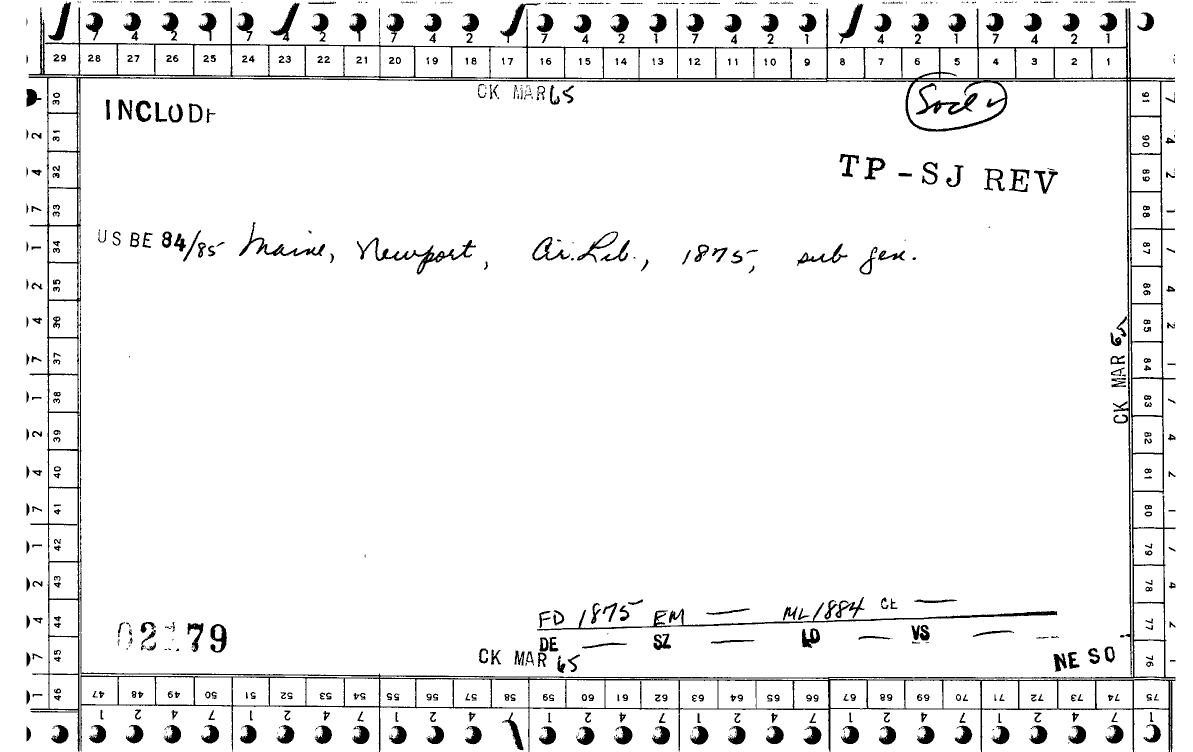 7 4 2 1 7 4 2 1 7 4 2 1 7 4 2 1 7 4 2 1 7 4 2 1 7 4 2 1
29 28 27 26 25 24 23 22 21 20 19 18 17 16 15 14 13 12 11 10 9 8 7 6 5 4 3 2 1
CK MAR 65
INCLODE
Socl
TP-SJ REV
US BE 84/85 Maine, Newport, Cir. Lib., 1875, sub gen.
CK MAR 65
FD 1875 EM — ML 1884 CE —
DE — SZ — LD — VS —
02179
CK MAR 65
NE SO
30 31 32 33 34 35 36 37 38 39 40 41 42 43 44 45 46
91 90 89 88 87 86 85 84 83 82 81 80 79 78 77 76 75
47 48 49 50 51 52 53 54 55 56 57 58 59 60 61 62 63 64 65 66 67 68 69 70 71 72 73 74 75
1 2 4 7 1 2 4 7 1 2 4 7 1 2 4 7 1 2 4 7 1 2 4 7 1 2 4 7